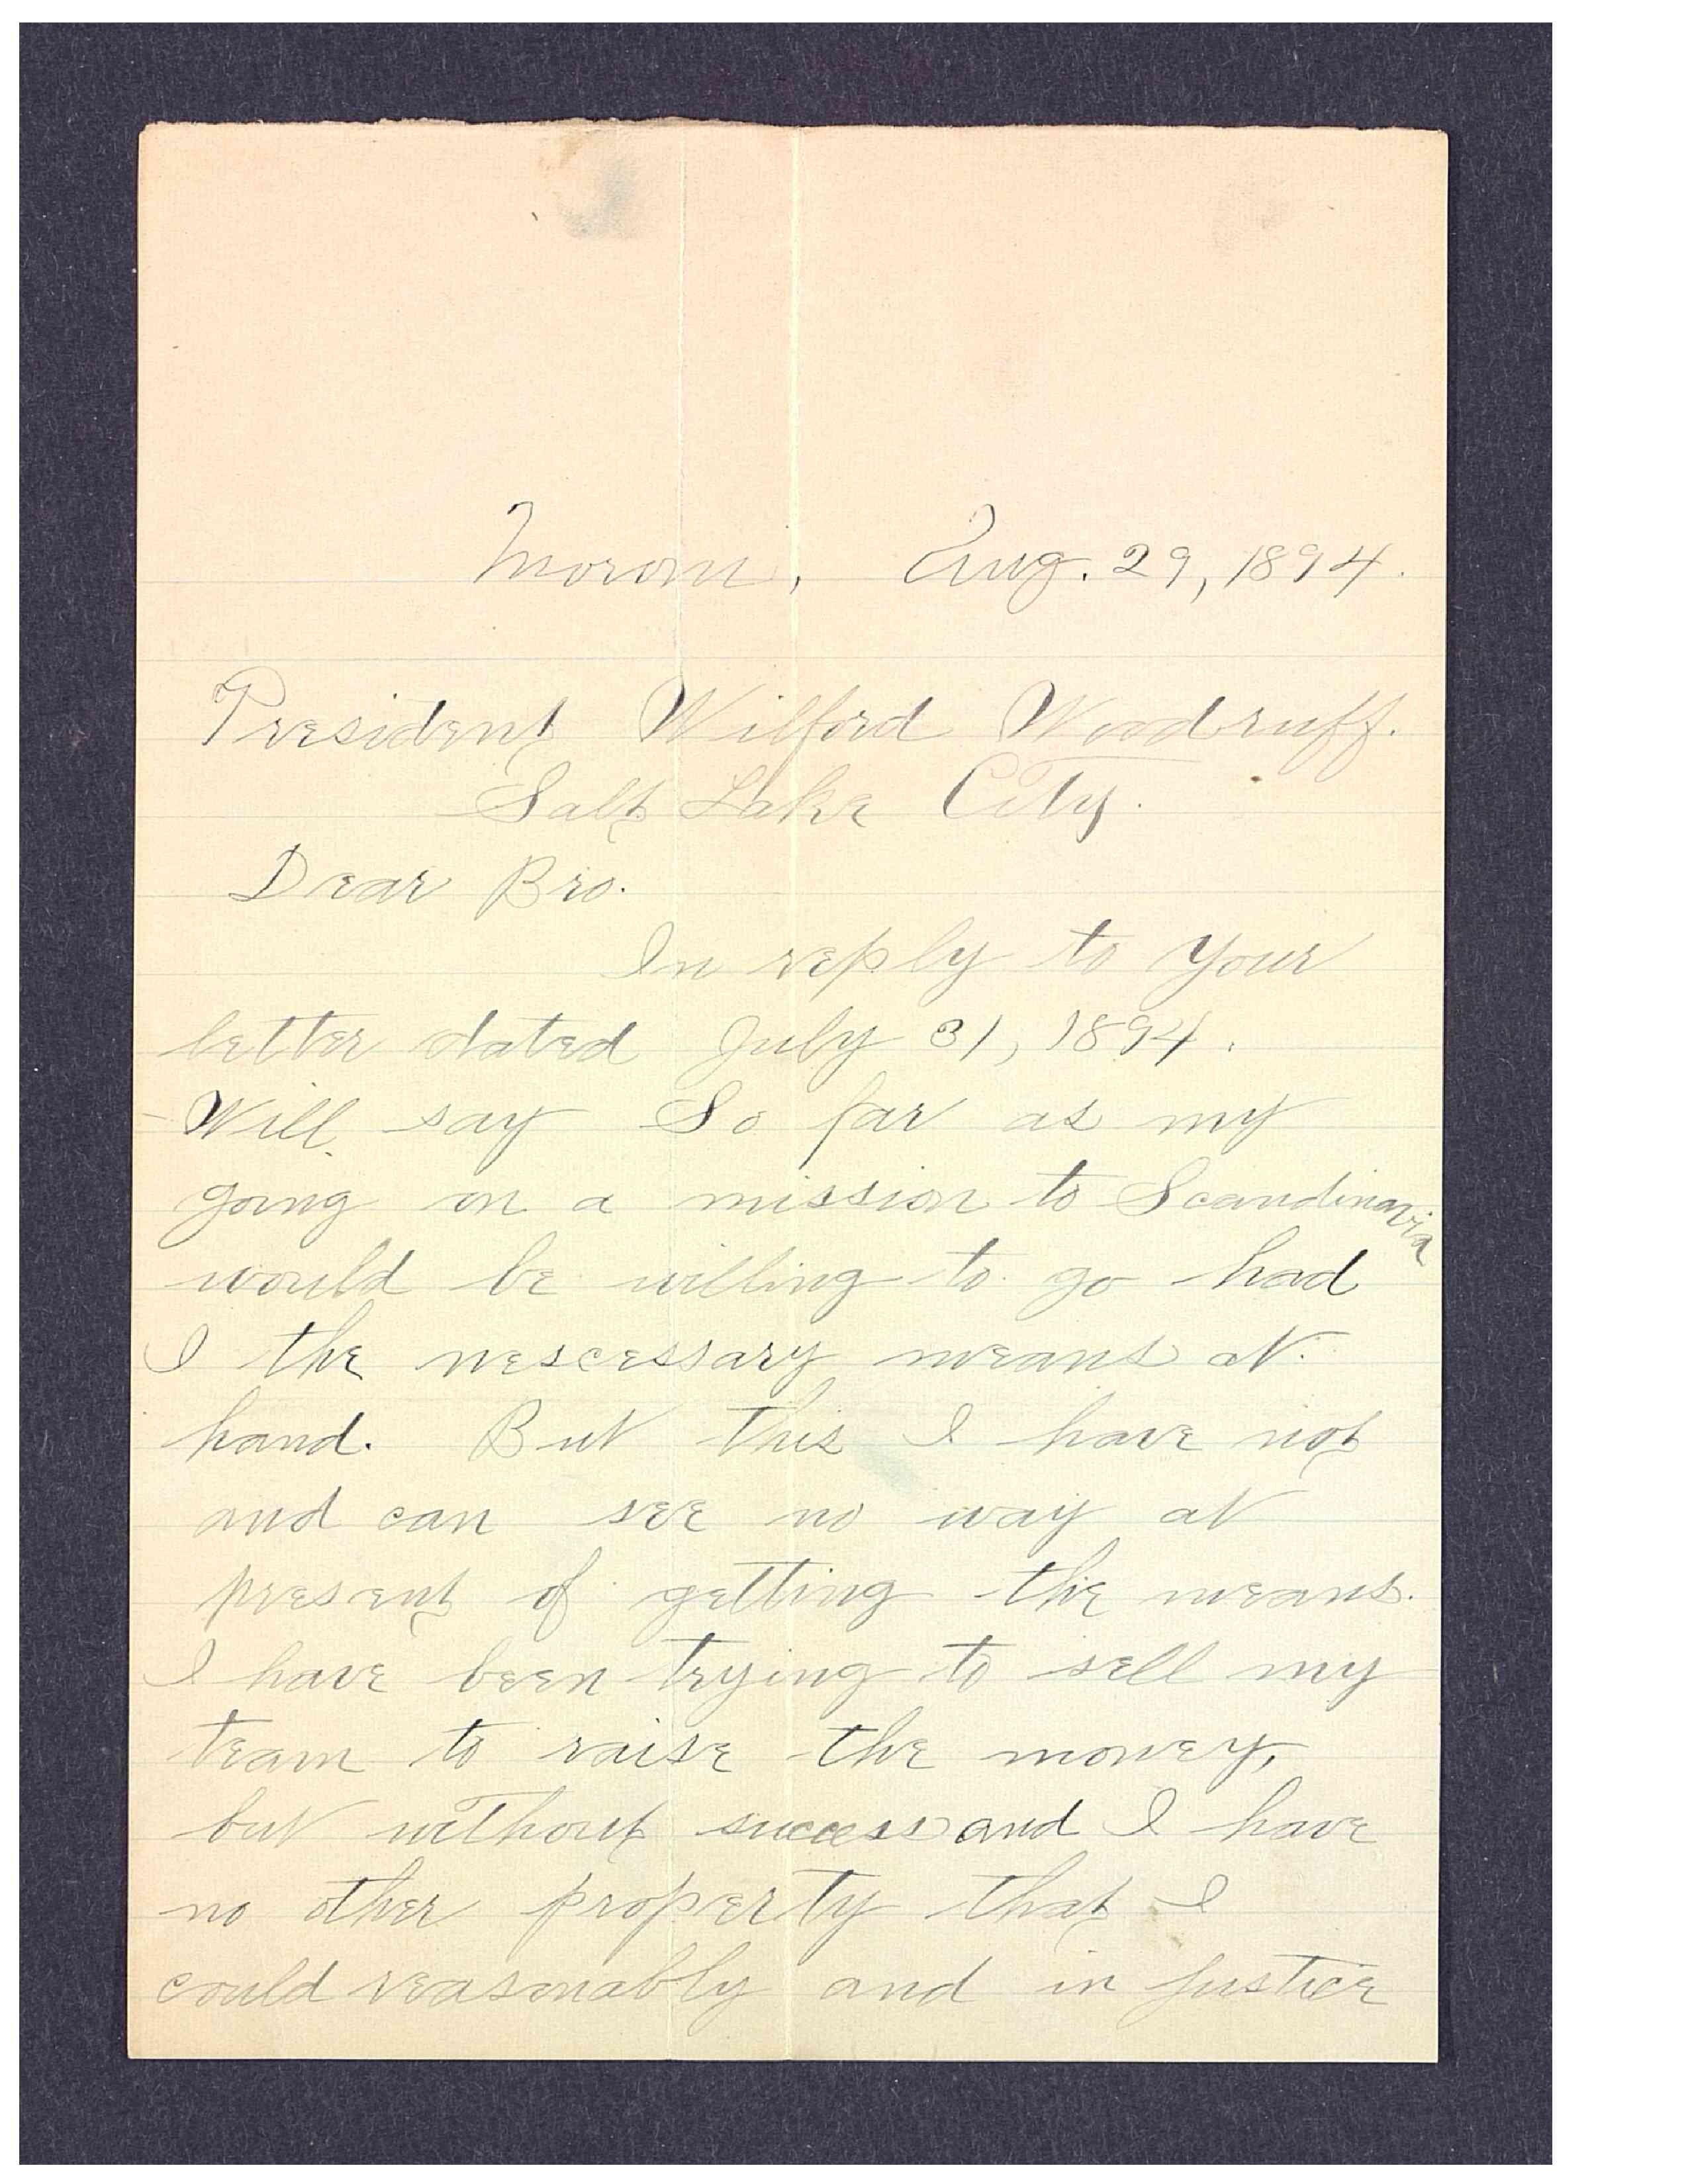 Moroni, Aug. 29, 1894.
President Wilford Woodruff.
Salt Lake City.
Dear Bro.
In reply to your
letter dated July 31, 1894.
Will say So far as my
going on a mission to Scandinavia
would be willing to go had
I the nescessary means at
hand. But this I have not
and can see no way at
present of getting the means.
I have been trying to sell my
team to raise the money,
but without success and I have
no other property that I
could reasonably and in justice